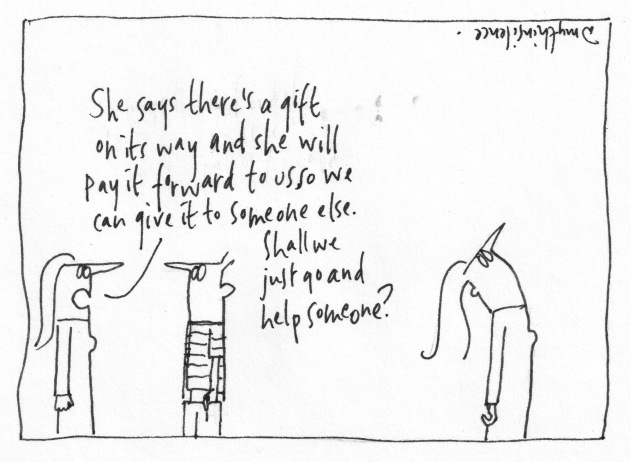 She says there's a gift
on its way and she will
pay it forward to us, so we
can give it to someone else.
Shall we
just go and
help someone?